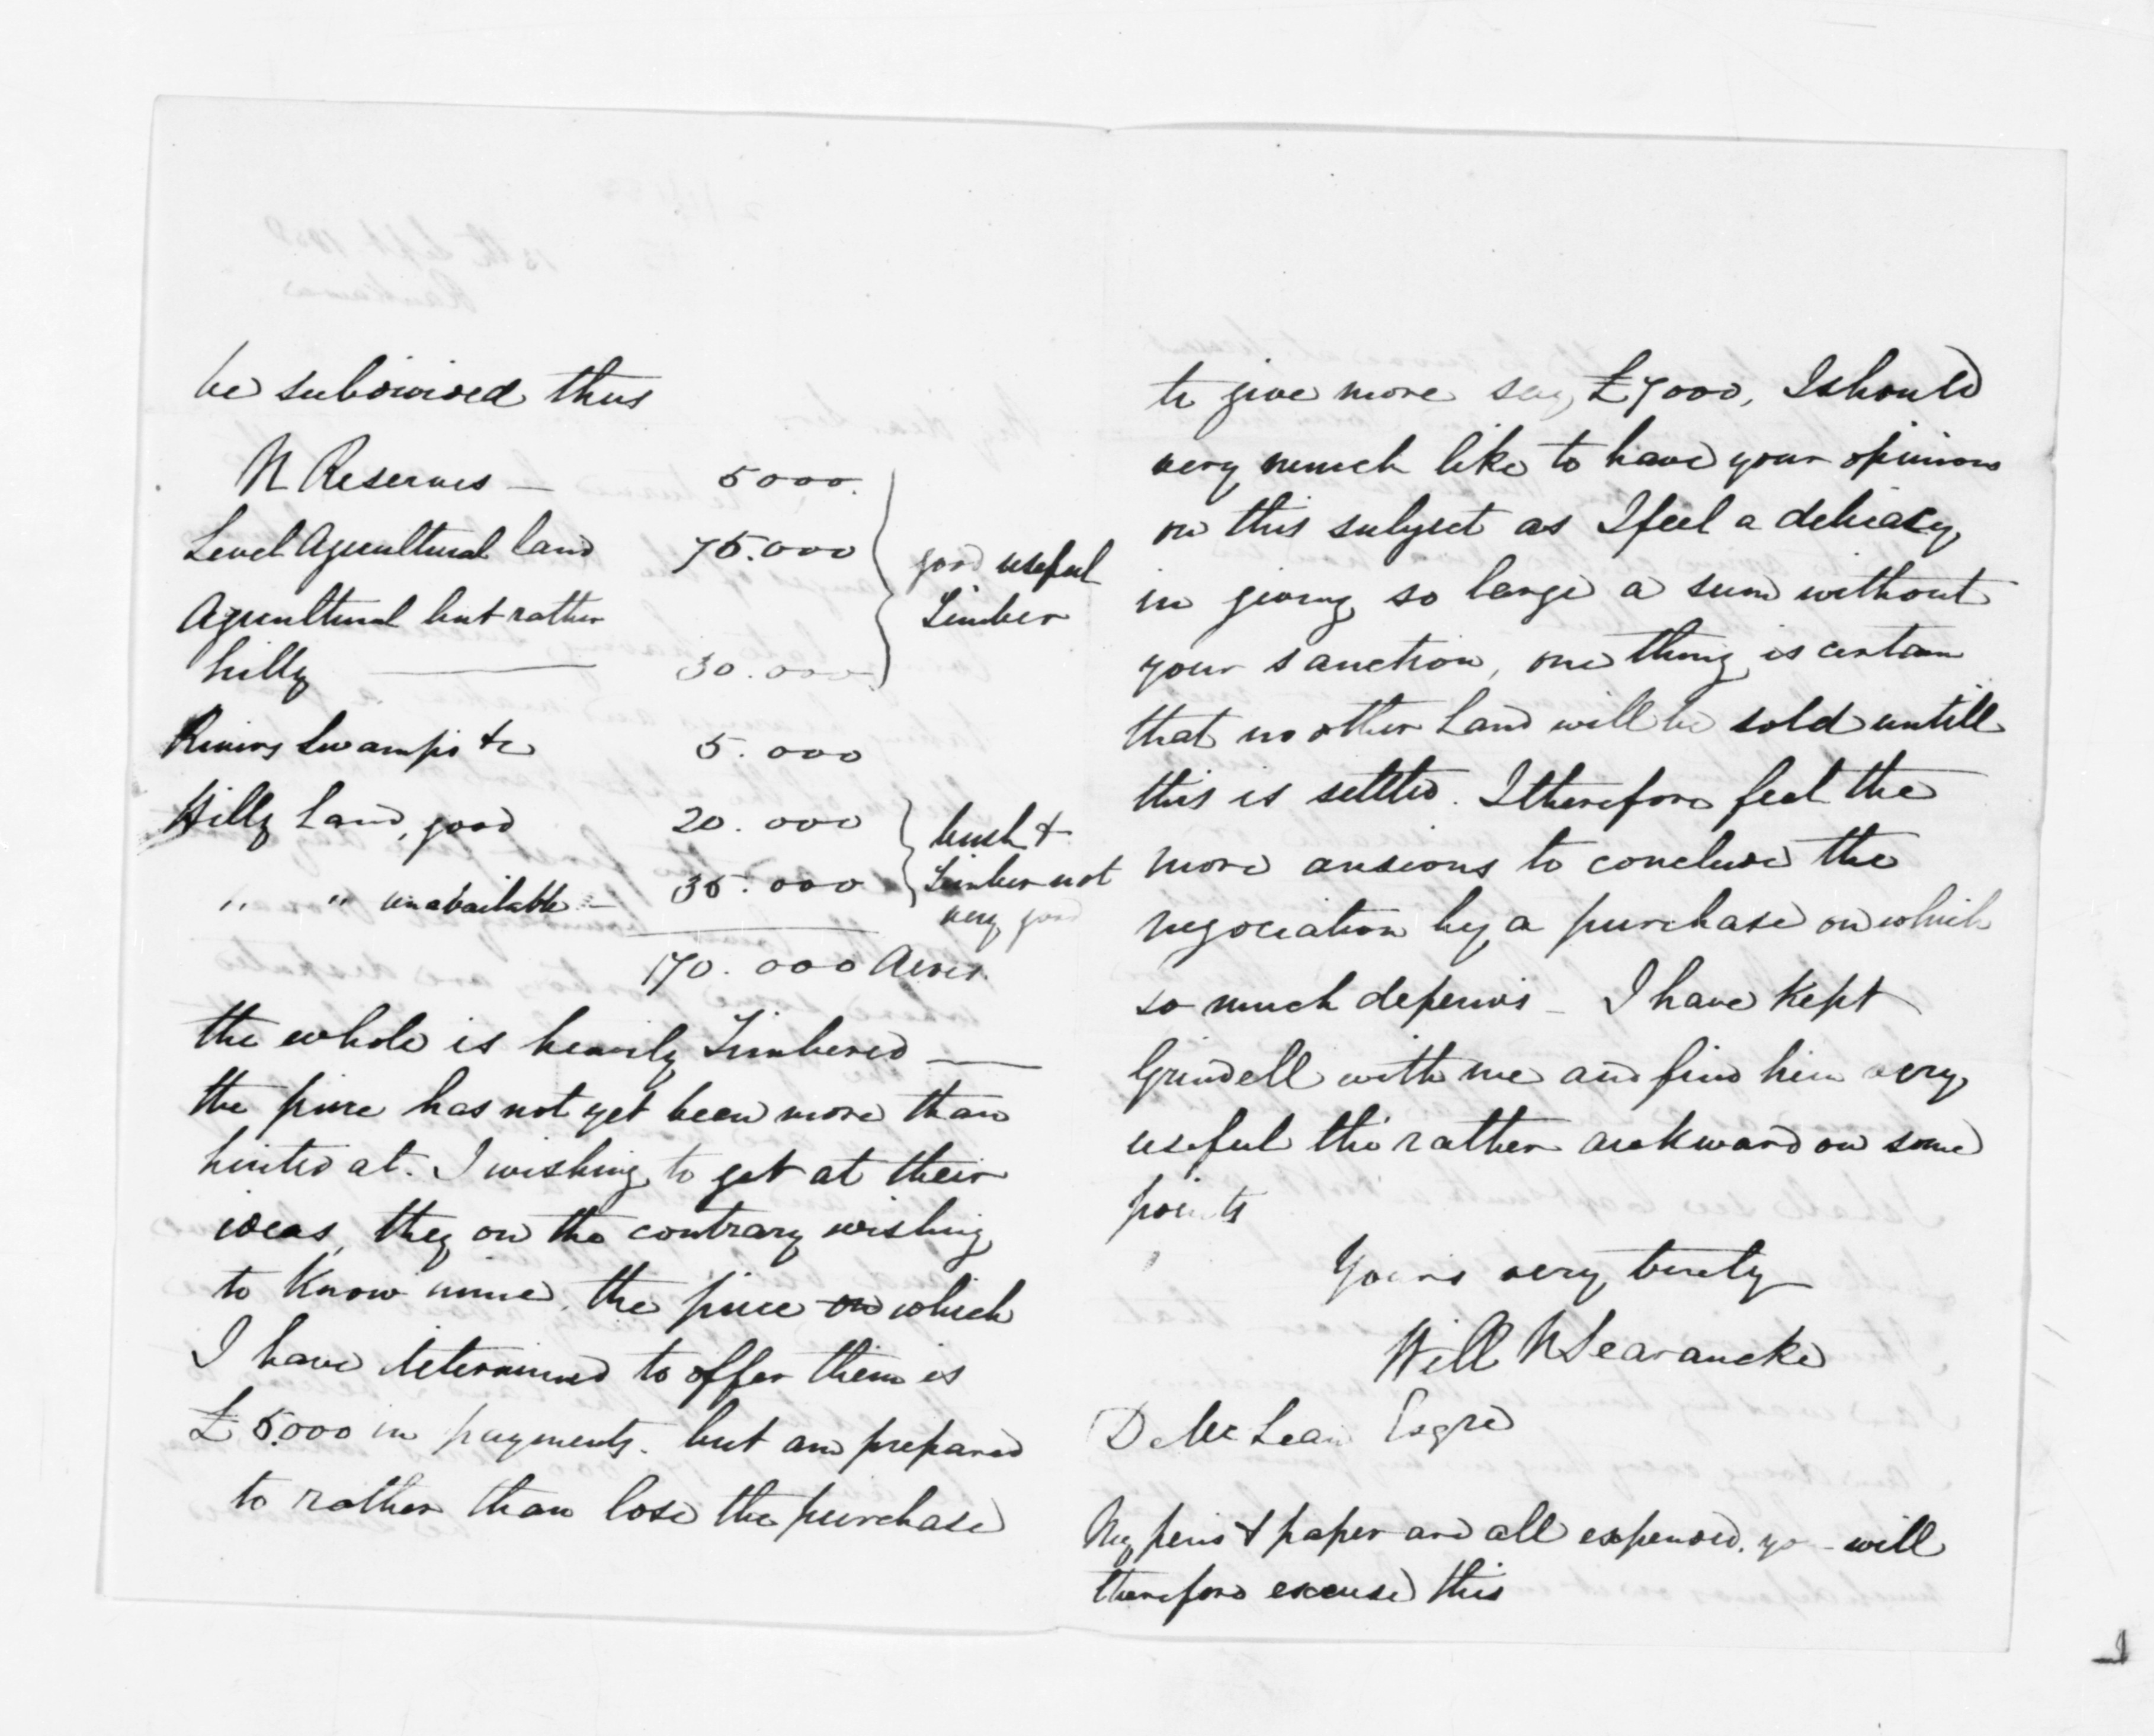 be subdivided thus
N Reserves — 5000.
Level Agricultural land 75.000
good useful
Timber
Agricultural but rather
hilly — 30.000
Rivers Swamps &c 5.000
Hilly Land, good 20.000
bush &
Timber not
very good
" " unavailable — 35.000
170.000 Acres.
the whole is heavily Timbered —
the price has not yet been more than
hinted at. I wishing to get at their
ideas, they on the contrary wishing
to Know mine, the price on which
I have determined to offer them is
£5.000 in payments. but am prepared
to rather than lose the purchase
to give more say £7000, I should
very much like to have your opinion
on this subject as I feel a delicacy
in giving so large a sum without
your sanction, one thing is certain
that no other Land will be sold untill
this is settled. I therefore feel the
more ansious to conclude the
negociation by a purchase on which
so much depends — I have Kept
Grindell with me and find him very
useful tho' rather awkward on some
points
Yours very truly
Will N Searancke
D McLean Esqre
My pens & paper are all expended. you will
therefore excuse this